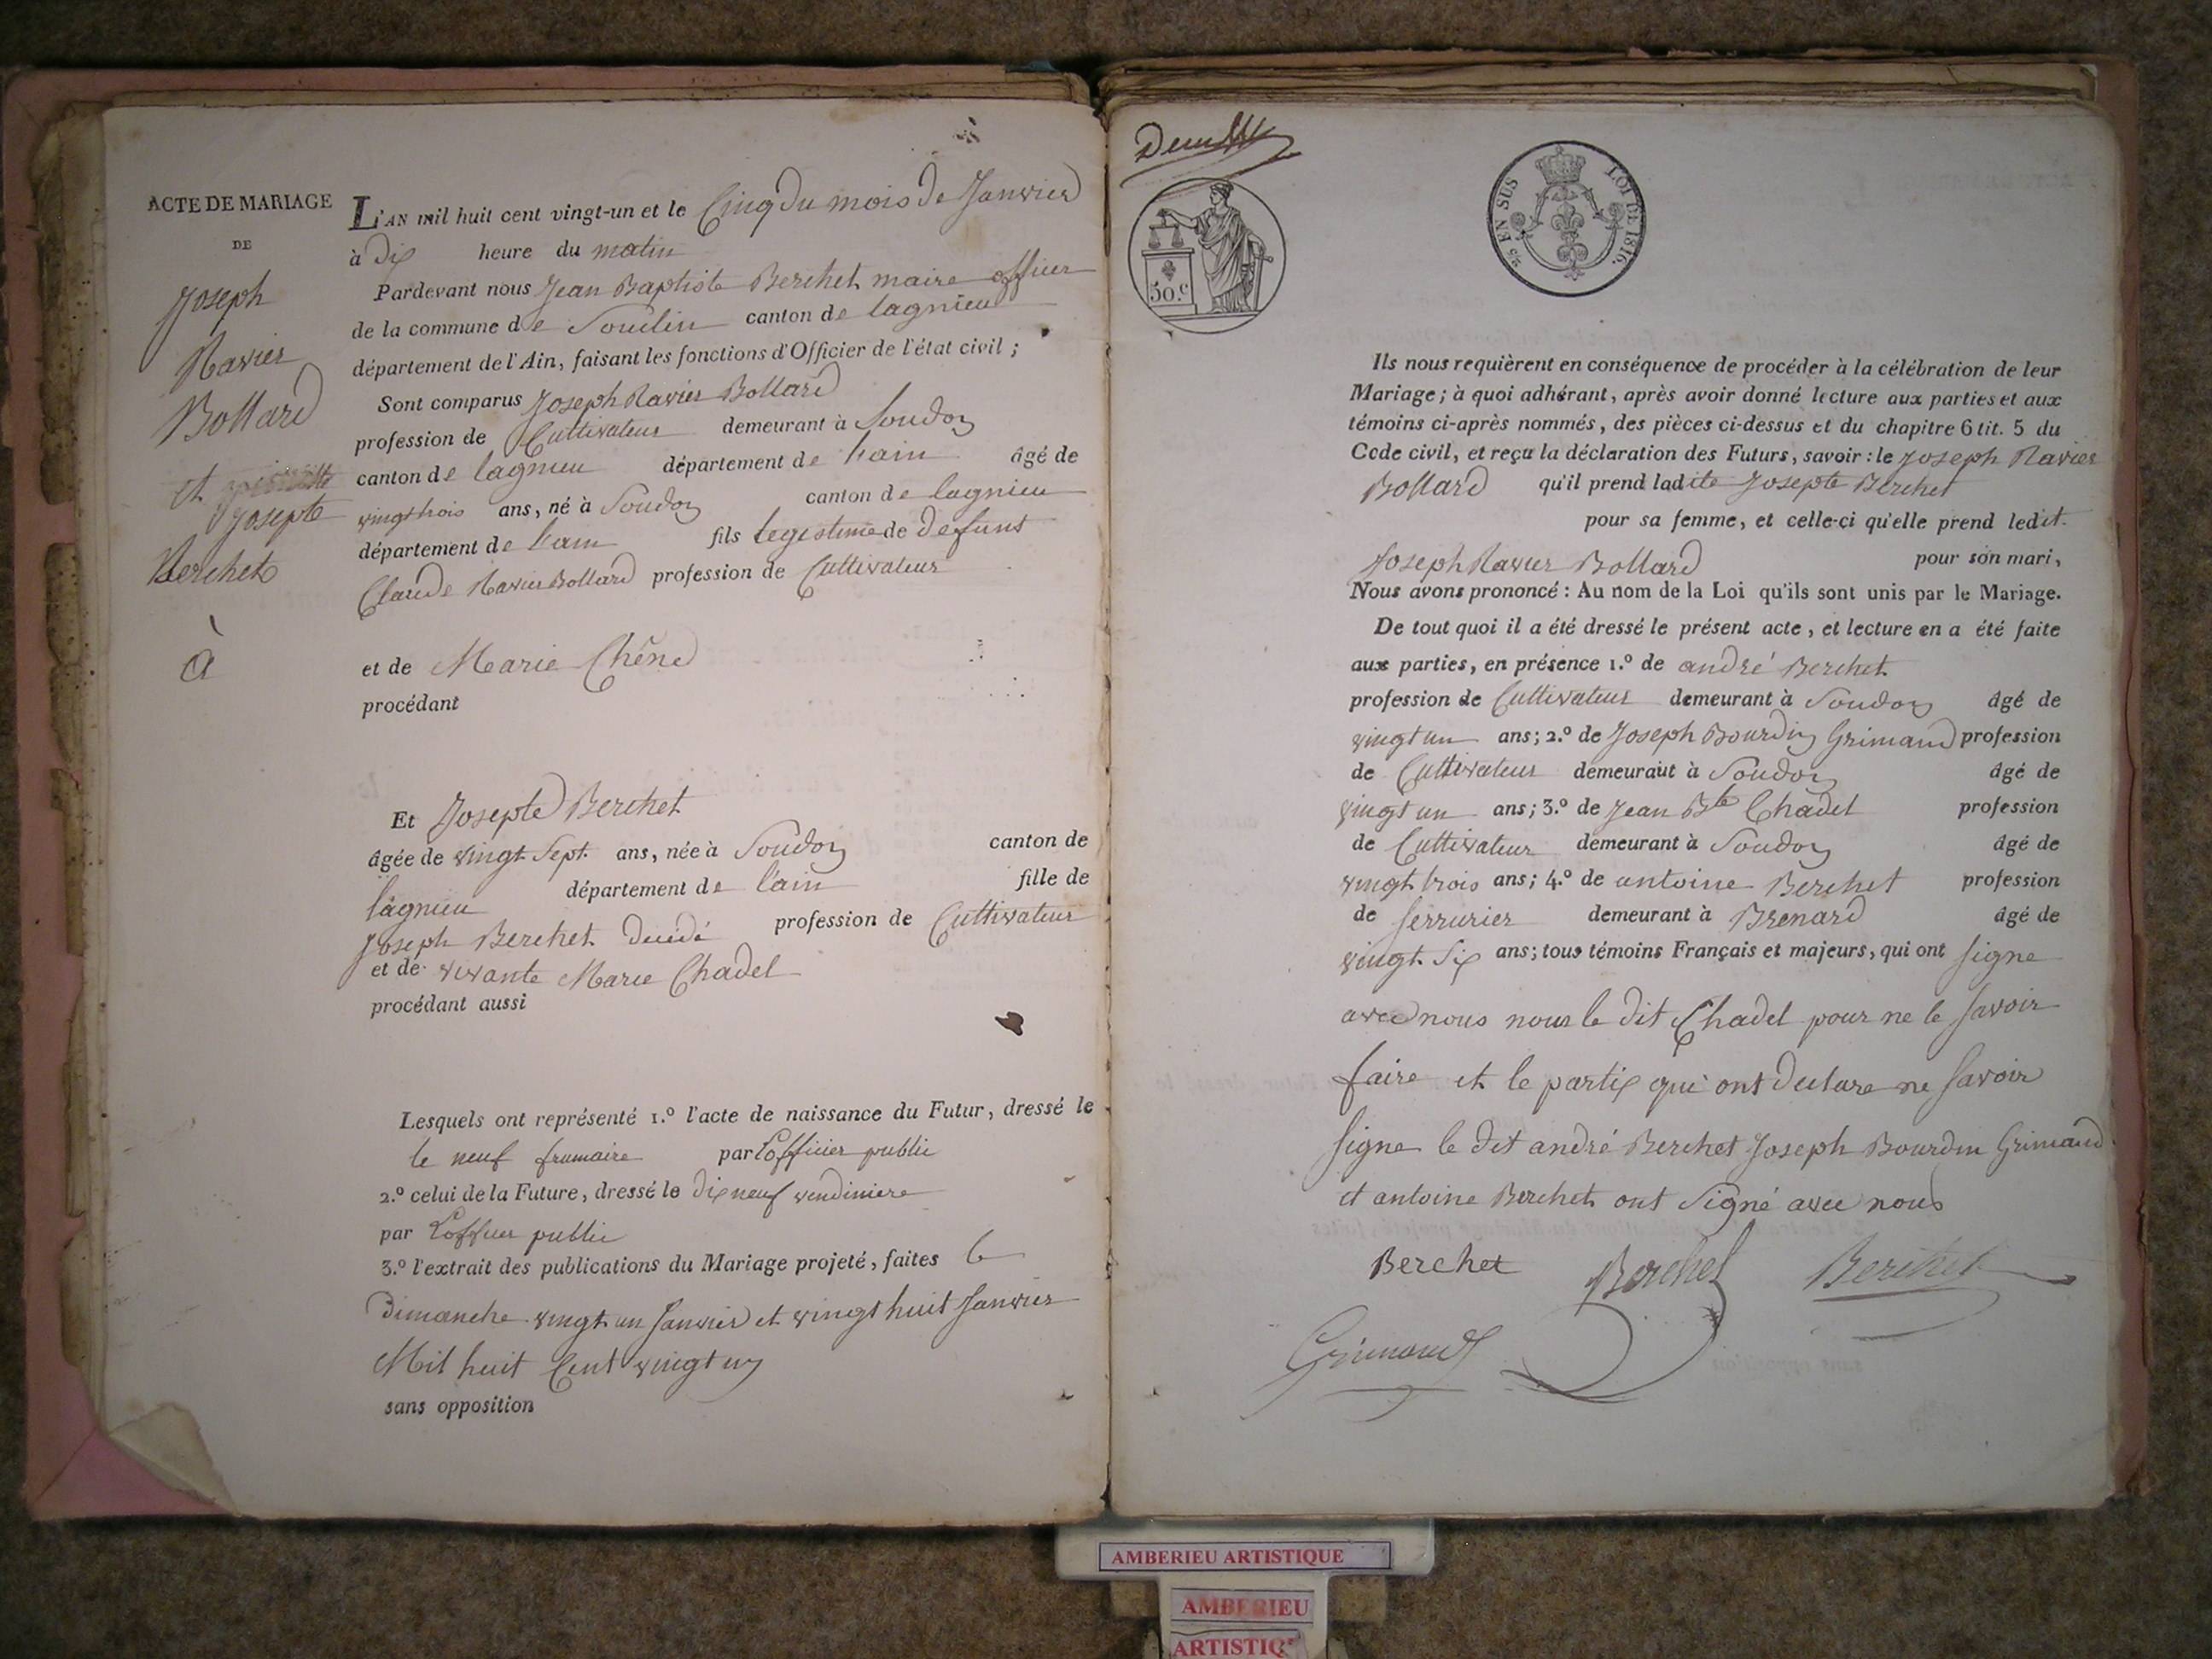 ACTE DE MARIAGE
DE
Joseph
Ravier
Bollard
et
Josepte
Berchet
à
L'AN mil huit cent vingt-un et le Cinq du mois de Janvier
à dix heure du matin
Pardevant nous Jean Baptiste Berchet maire officier
de la commune de Souclin canton de lagnieu
département de l'Ain, faisant les fonctions d'Officier de l'état civil ;
Sont comparus Joseph Ravier Bollard
profession de Cultivateur demeurant à Soudon
canton de lagnieu département de l'ain âgé de
vingt trois ans, né à Soudon canton de lagnieu
département de l'ain fils legistime de defunt
Claude Ravier Bollard profession de Cultivateur
et de Marie Chêne
procédant
Et Josepte Berchet
âgée de vingt Sept ans, née à Soudon canton de
lagnieu département de l'ain fille de
Joseph Berchet decédé profession de Cultivateur
et de vivante Marie Chadel
procédant aussi
Lesquels ont représenté 1.º l'acte de naissance du Futur, dressé le
le neuf frumaire par L'officier public
2.º celui de la Future, dressé le dix neuf vendiniere
par L'officier public
3.º l'extrait des publications du Mariage projeté, faites le
Dimanche vingt un Janvier et vingt huit Janvier
Mil huit Cent vingt un
sans opposition
25 EN SUS
LOI DE 1816.
50.c
Ils nous requièrent en conséquence de procéder à la célébration de leur
Mariage ; à quoi adhérant, après avoir donné lecture aux parties et aux
témoins ci-après nommés, des pièces ci-dessus et du chapitre 6 tit. 5 du
Code civil, et reçu la déclaration des Futurs, savoir : le Joseph Ravier
Bollard qu'il prend ladite Josepte Berchet
pour sa femme, et celle-ci qu'elle prend ledit
Joseph Ravier Bollard pour son mari,
Nous avons prononcé : Au nom de la Loi qu'ils sont unis par le Mariage.
De tout quoi il a été dressé le présent acte, et lecture en a été faite
aux parties, en présence 1.º de andré Berchet
profession de Cultivateur demeurant à Soudon âgé de
vingt un ans ; 2.º de Joseph Bourdin Grimaud profession
de Cultivateur demeurant à Soudon âgé de
vingt un ans ; 3.º de Jean Bte Chadel profession
de Cultivateur demeurant à Soudon âgé de
vingt trois ans ; 4.º de antoine Berchet profession
de serrurier demeurant à Brenard âgé de
vingt Six ans ; tous témoins Français et majeurs, qui ont signe
avec nous nous le dit Chadel pour ne le savoir
faire et le partix qui ont declare ne savoir
signe le dit andré Berchet Joseph Bourdin Grimaud
et antoine Berchet ont Signé avec nous
Berchet Berchet Berchet
Grimaud
AMBERIEU ARTISTIQUE
AMBERIEU
ARTISTIQ